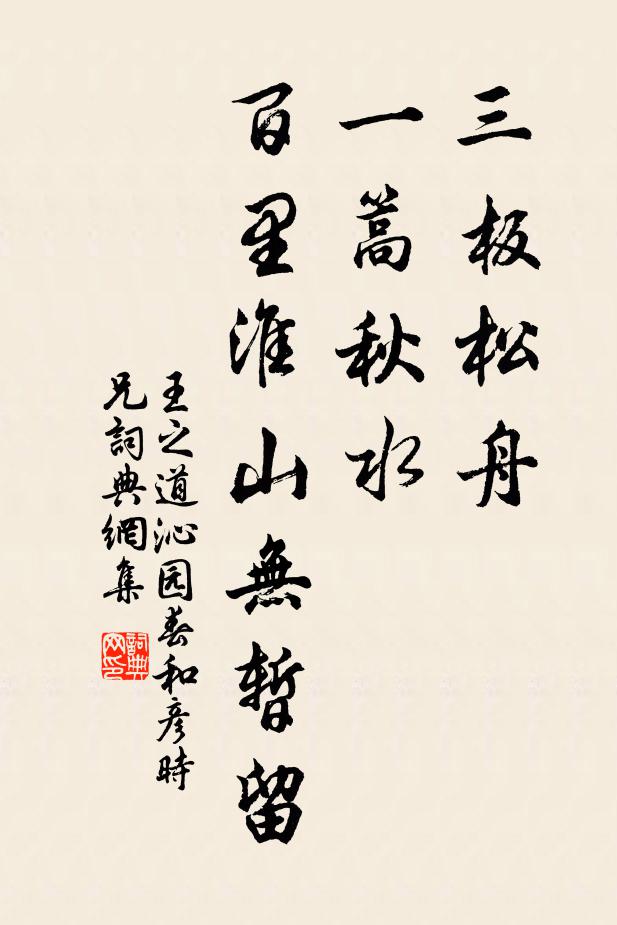 三板松舟
一篙秋水
百里淮山無暫留
王之道沁园春和彦時
兄詞典網集
詞典網印